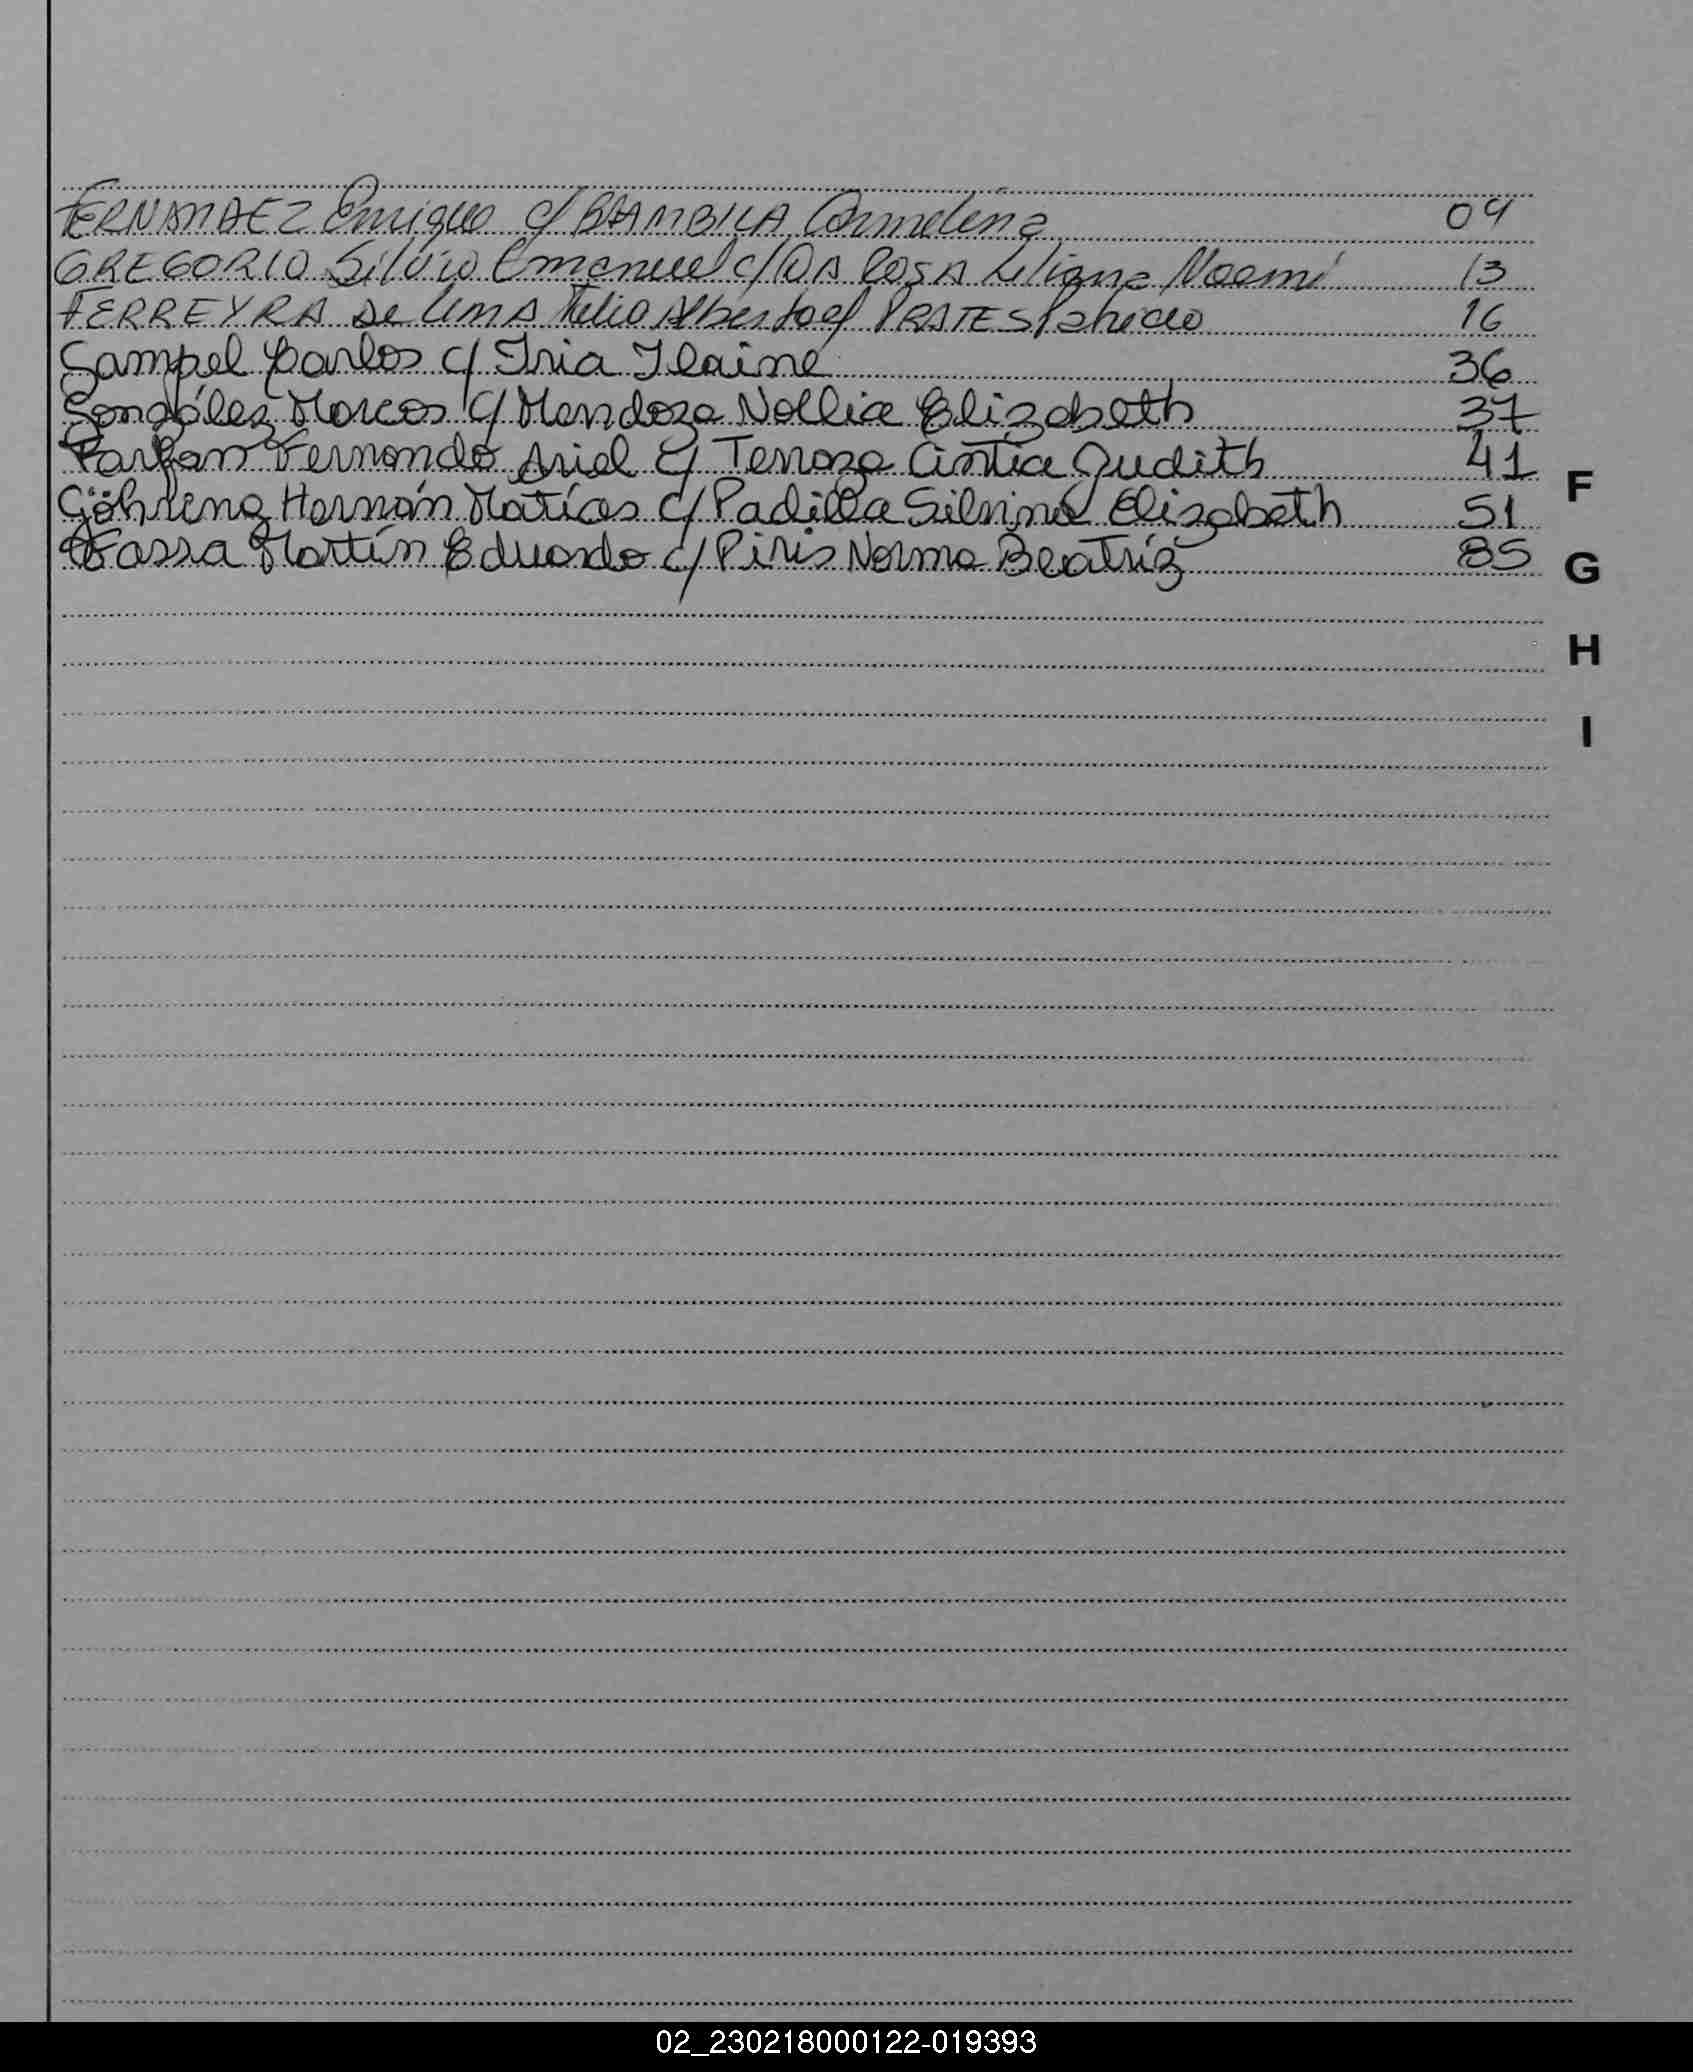 FERNANDEZ Enrique c/ BRAMBILA Carmelina 04
GREGORIO Silvio Emanuel c/ DA ROSA Liliana Noemí 13
FERREYRA De LIMA Helio Alberto c/ PRATES Patricia 16
Gampel Carlos c/ Iria Ilaine 36
Gonzáles Marcos c/ Mendoza Nollia Elizabeth 37
Farfan Fernando Ariel c/ Terraza Cintia Judith 41
Göhring Hernán Matías c/ Padilla Silvina Elizabeth 51
Fassa Martín Eduardo c/ Piris Norma Beatriz 85
F
G
H
I
02_230218000122-019393